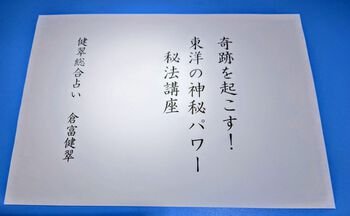 奇跡を起こす!
東洋の神秘パワー
秘法講座
健翠総合占い
倉富健翠